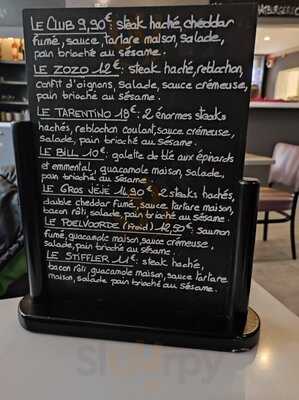 Le Club 9,90€: steak haché, cheddar
fumé, sauce tartare maison, salade,
pain brioché au sésame.
Le Zozo 12€: steak haché, reblochon,
confit d'oignons, salade, sauce crémeuse,
pain brioché au sésame.
Le Tarentino 18€: 2 énormes steaks
hachés, reblochon coulant, sauce crémeuse,
salade, pain brioché au sésame.
Le Bill 10€: galette de blé aux épinards
et emmental, guacamole maison, salade,
pain brioché au sésame.
Le Gros Jéjé 14,90€: 2 steaks hachés,
double cheddar fumé, sauce tartare maison,
bacon rôti, salade, pain brioché au sésame.
Le Poelvoorde (froid) 12,50€: saumon
fumé, guacamole maison, sauce crémeuse,
salade, pain brioché au sésame.
Le Stiffler 11€: steak haché,
bacon rôti, guacamole maison, sauce tartare
maison, salade pain brioché au sésame.
Sluurpy